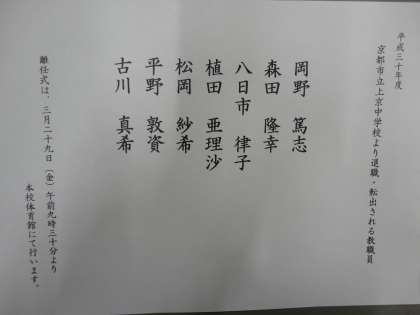 平成三十年度
京都市立上京中学校より退職・転出される教職員
岡野 篤志
森田 隆幸
八日市 律子
植田 亜理沙
松岡 紗希
平野 敦資
古川 真希
離任式は、三月二十九日（金）午前九時三十分より
本校体育館にて行います。